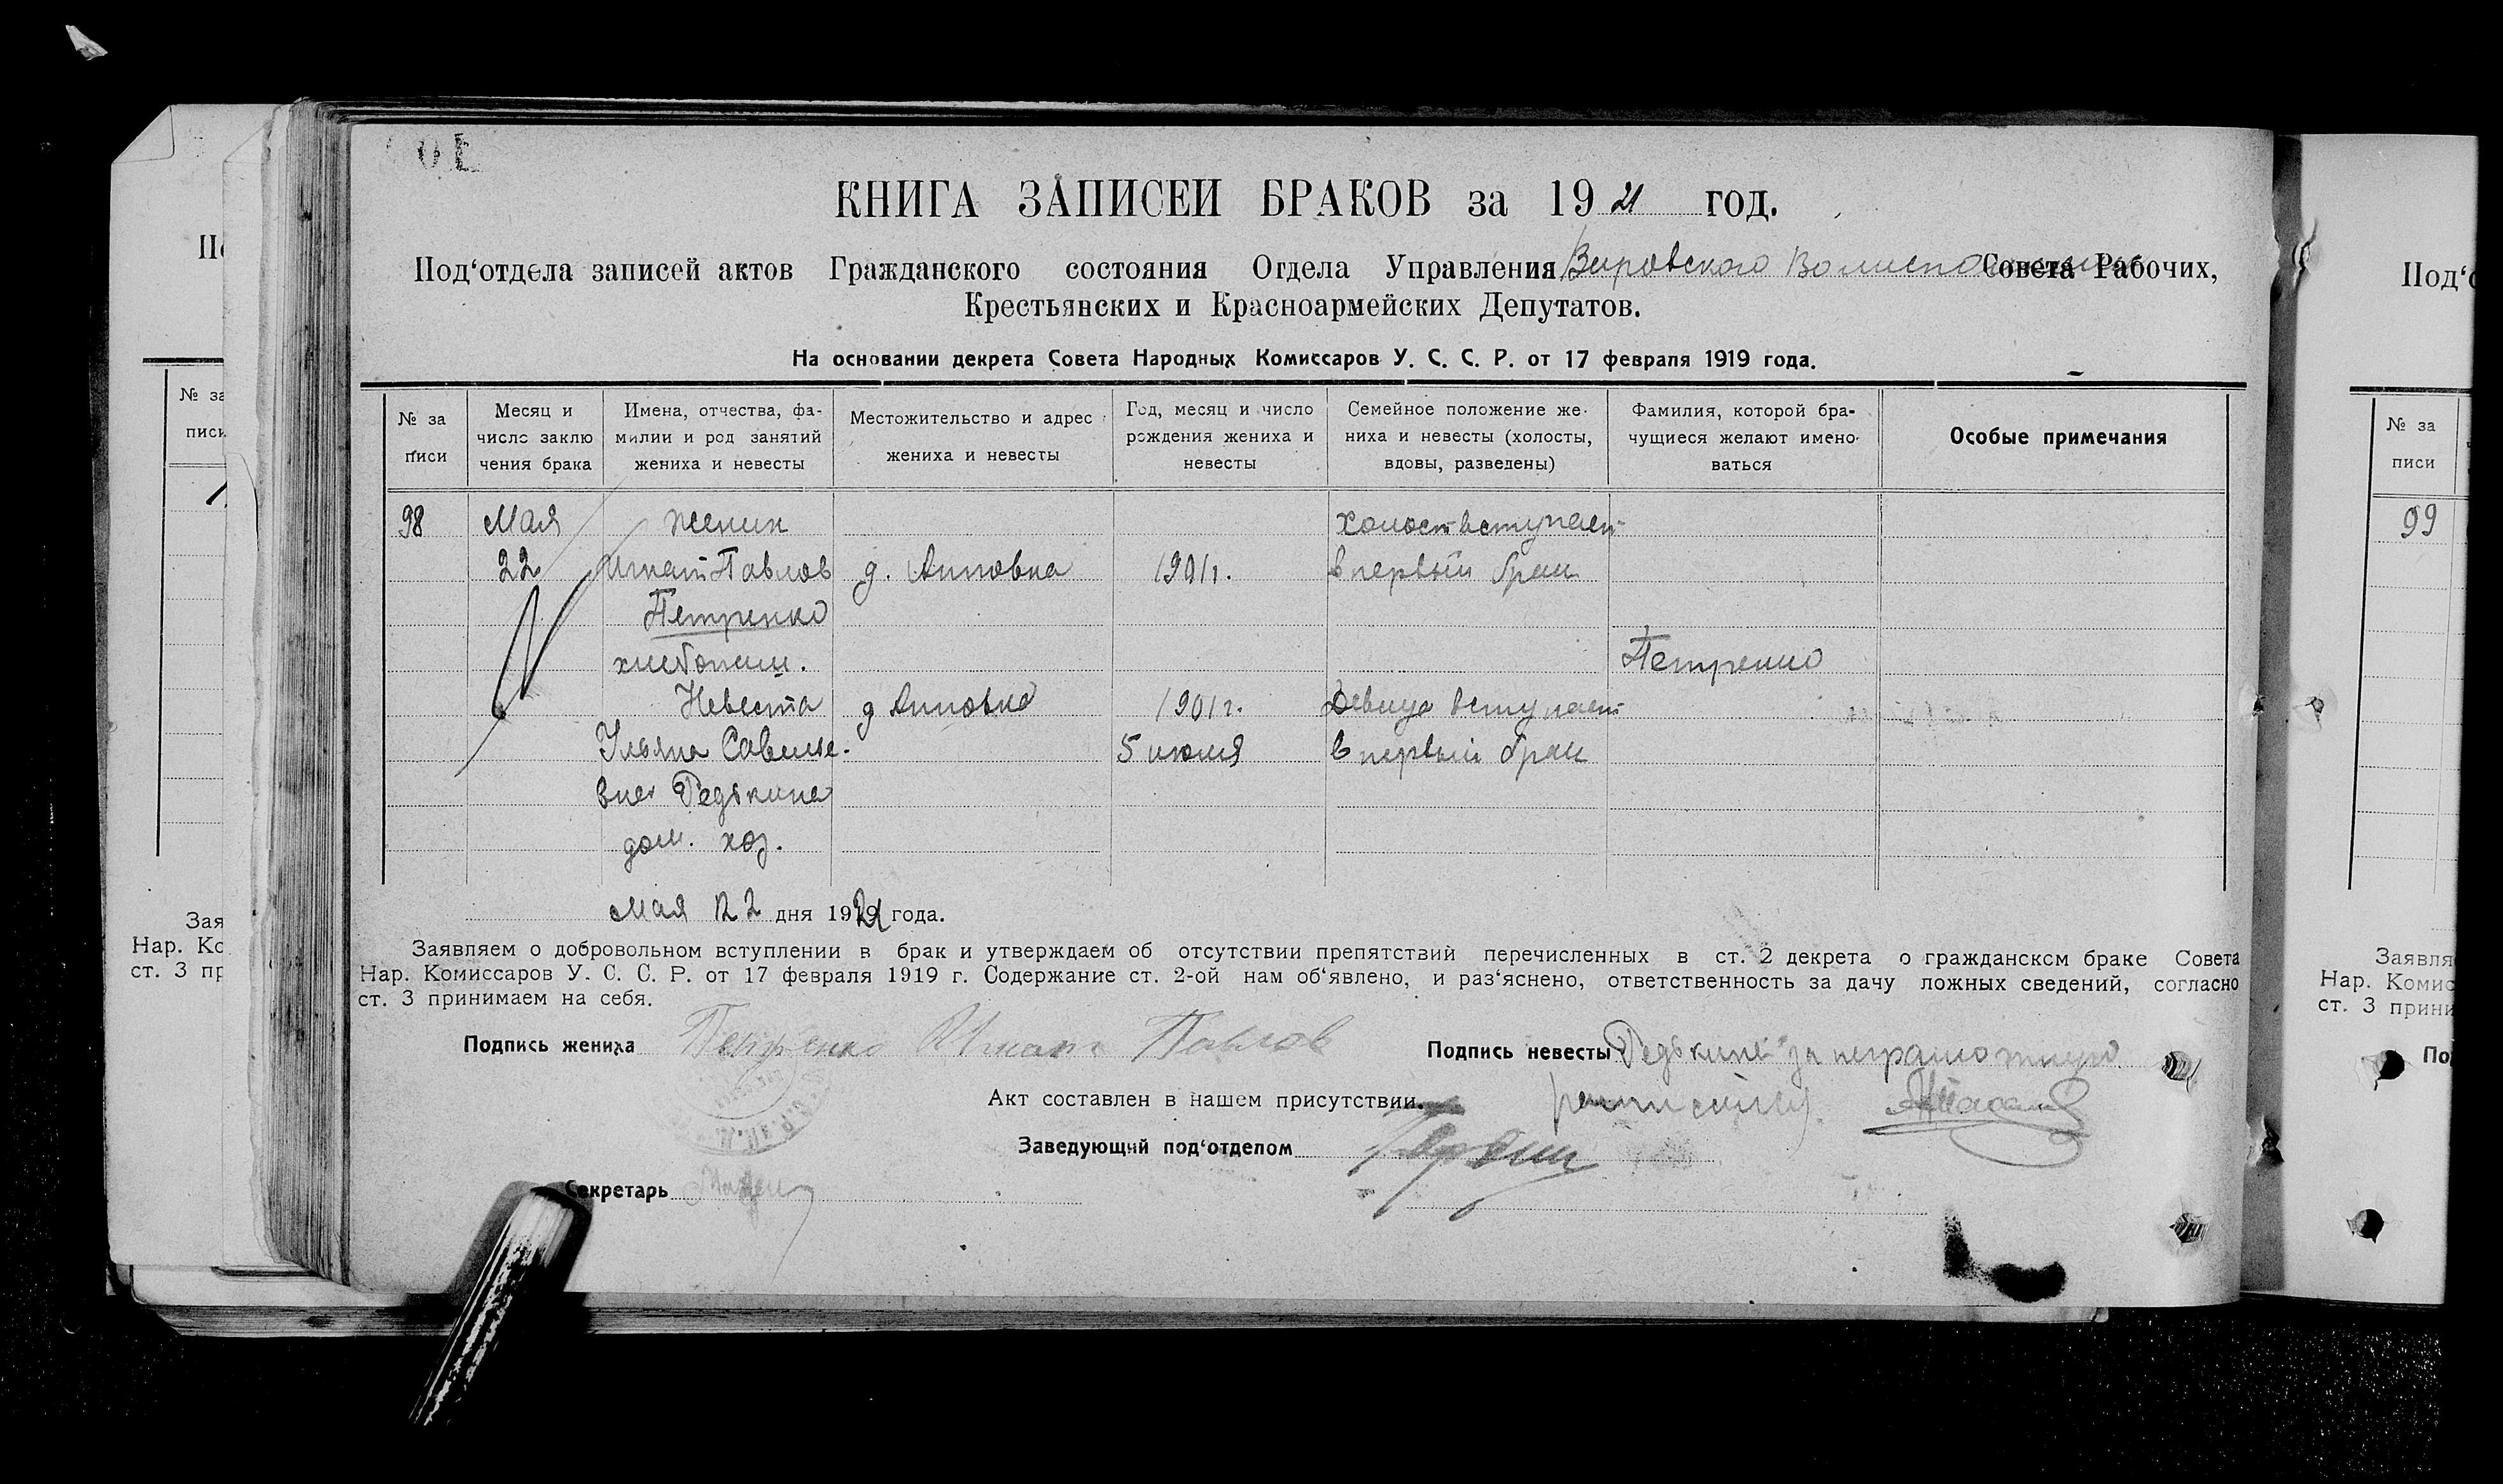 КНИГА ЗАПИСЕЙ БРАКОВ за 1921 год.
Под‘отдела записей актов Гражданского состояния Отдела Управления Вировского Волисполкома Совета Рабочих,
Крестьянских и Красноармейских Депутатов.
На основании декрета Совета Народных Комиссаров У. С. С. Р. от 17 февраля 1919 года.
№ за писи
Месяц и число заклю чения брака
Имена, отчества, фа- милии и род занятий жениха и невесты
Местожительство и адрес жениха и невесты
Год, месяц и число рождения жениха и невесты
Семейное положение же- ниха и невесты (холосты, вдовы, разведены)
Фамилия, которой бра- чущиеся желают имено- ваться
Особые примечания
98 Мая жених холост вступает
22 Игнат Павлов д. Анновка 1901г. в первый брак
Петренко
хлебопаш. Петренко
Невеста д Анновка 1901г. Девица вступает
Ульяна Савелье- 5 июля в первый брак
вна Редькина
дом. хоз.
Мая 22 дня 1921 года.
Заявляем о добровольном вступлении в брак и утверждаем об отсутствии препятствий перечисленных в ст. 2 декрета о гражданском браке Совета
Нар. Комиссаров У. С. С. Р. от 17 февраля 1919 г. Содержание ст. 2-ой нам об‘явлено, и раз‘яснено, ответственность за дачу ложных сведений, согласно
ст. 3 принимаем на себя.
Подпись жениха Петренко Игнат Павлов
Подпись невесты Редькина за неграмотную
Акт составлен в нашем присутствии. расписался
Заведующий под‘отделом
Секретарь
№ за
писи
99
Под‘о
Заявля
Нар. Комис
ст. 3 прини
По
№ за
писи
Зая
Нар. Ко
ст. 3 пр